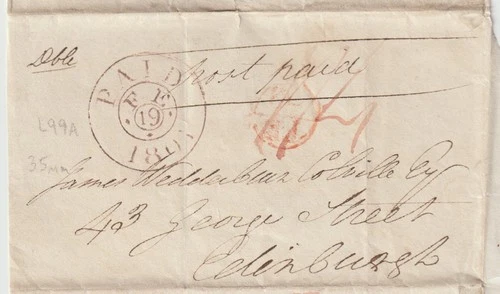 Dble
post paid
PAID
FE
19
L99A
35mm
James Wedderburn Colville Esq
43 George Street
Edinburgh